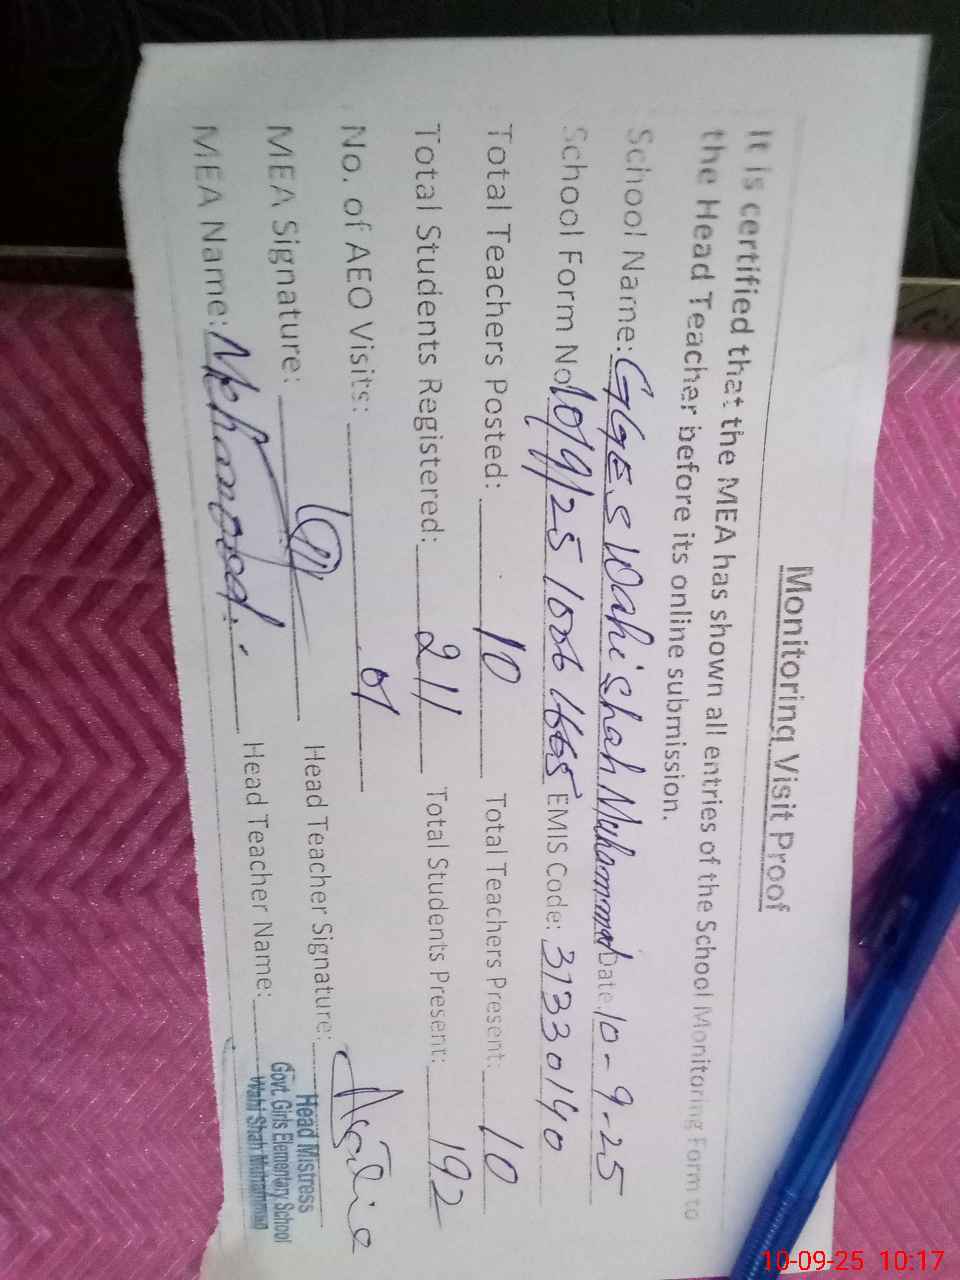 Monitoring Visit Proof
It is certified that the MEA has shown all entries of the School Monitoring Form to
the Head Teacher before its online submission.
School Name: GGES Wahi Shah Muhammad Date: 10-9-25
School Form No. EMIS Code: 31330140
Total Teachers Posted: 10 Total Teachers Present: 10
Total Students Registered: 211 Total Students Present: 192
No. of AEO Visits: 01
MEA Signature: Head Teacher Signature:
MEA Name: Head Teacher Name:
Head Mistress
Govt. Girls Elementary School
Wahi Shah Muhammad
10-09-25 10:17